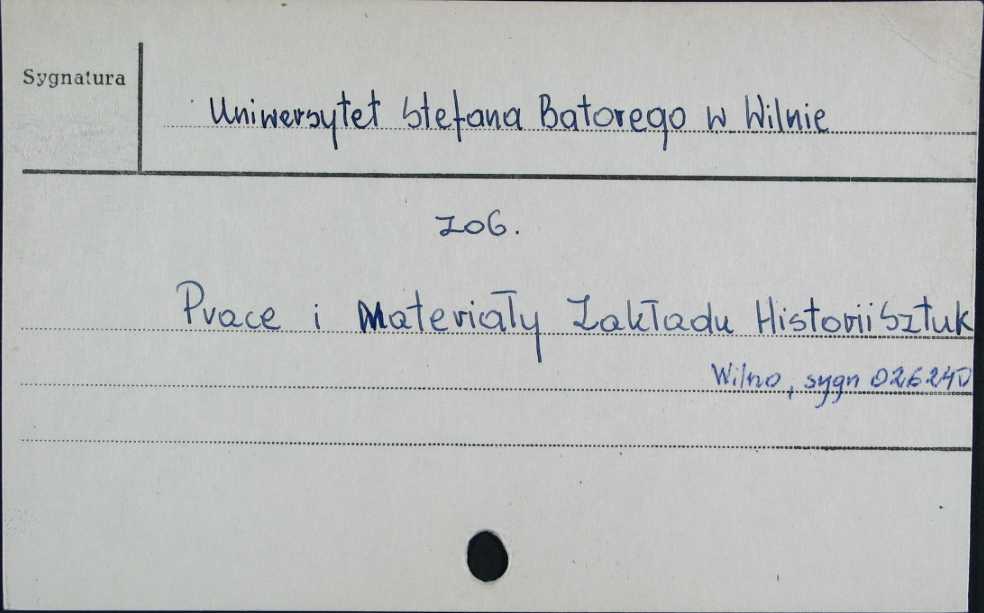 Sygnatura
Uniwersytet Stefana Batorego w Wilnie
zob.
Prace i Materiały Zakładu Historii Sztuk
Wilno, sygn 026240